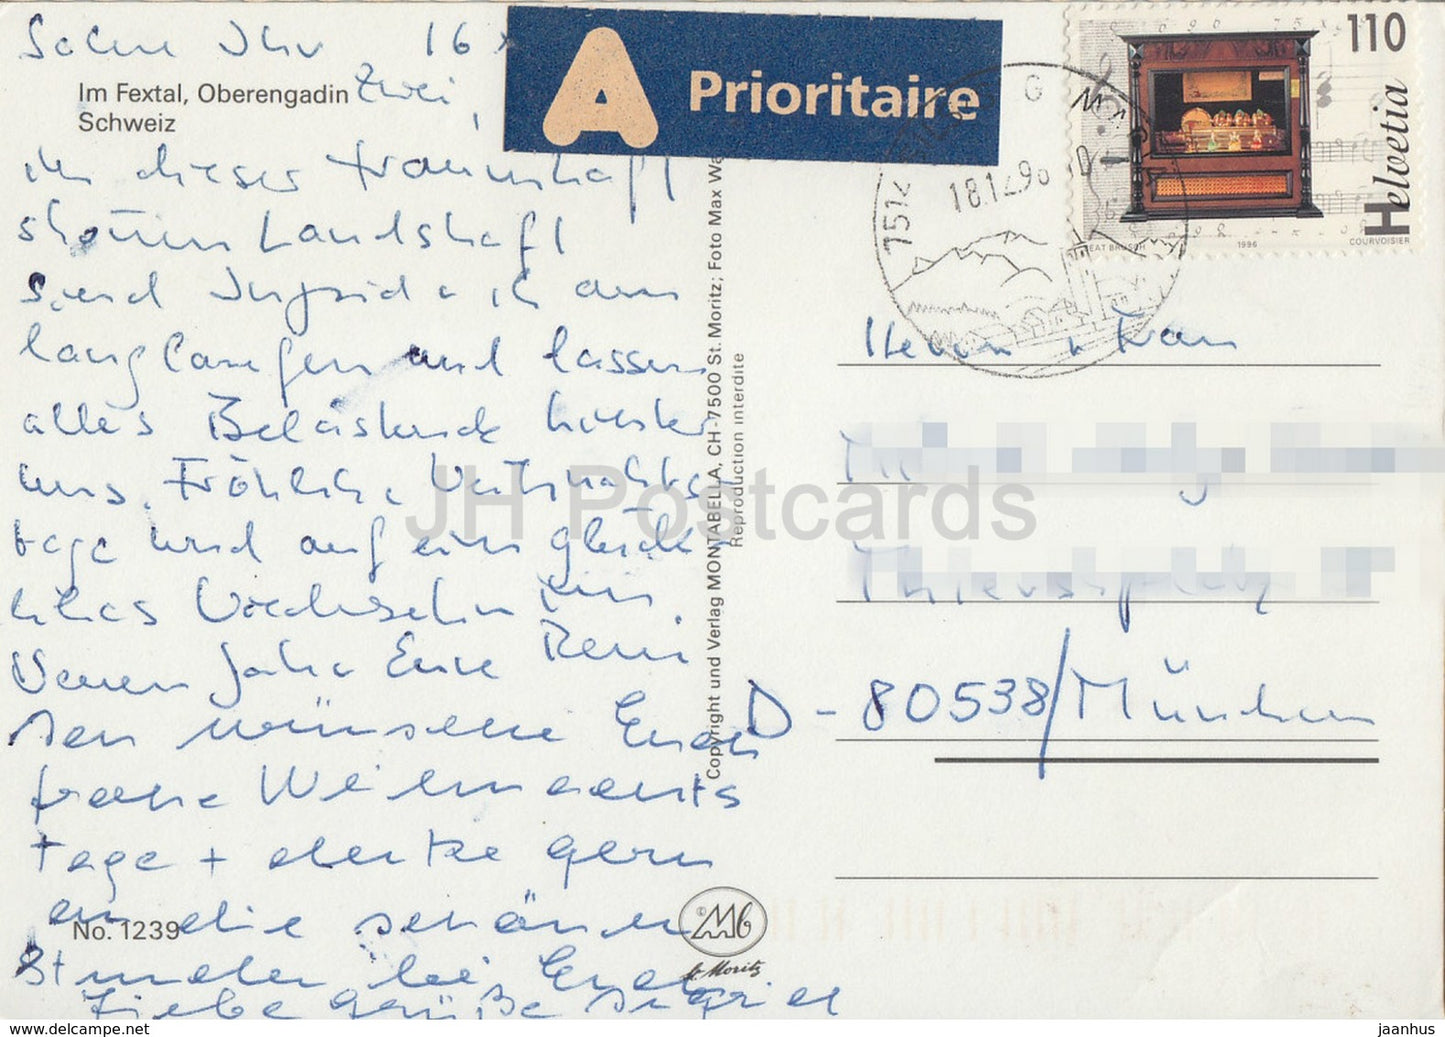 Im Fextal, Oberengadin
Schweiz
Ihr
16
Zwei
in dieser traumhaft
schönen Landschaft
sind Ingrid + ich am
langlaufen und lassen
alles Belastende hinter
uns. Fröhliche Weihnachts-
tage und auf ein glück-
liches Wechseln ins
Neuen Jahr Eure Reni
wünsche Euch
frohe Weihnachts
tage + denke gern
an die schönen
Stunden bei Euch
Liebe Grüße Ingrid
No. 1239
A Prioritaire
Copyright und Verlag MONTABELLA, CH-7500 St. Moritz; Foto Max
Reproduction interdite
Mb
St. Moritz
18.12.96
110
Helvetia
BEAT BRÜSCH
1996
COURVOISIER
Herrn + Frau
D - 80538/München
JH Postcards
www.delcampe.net
jaanhus